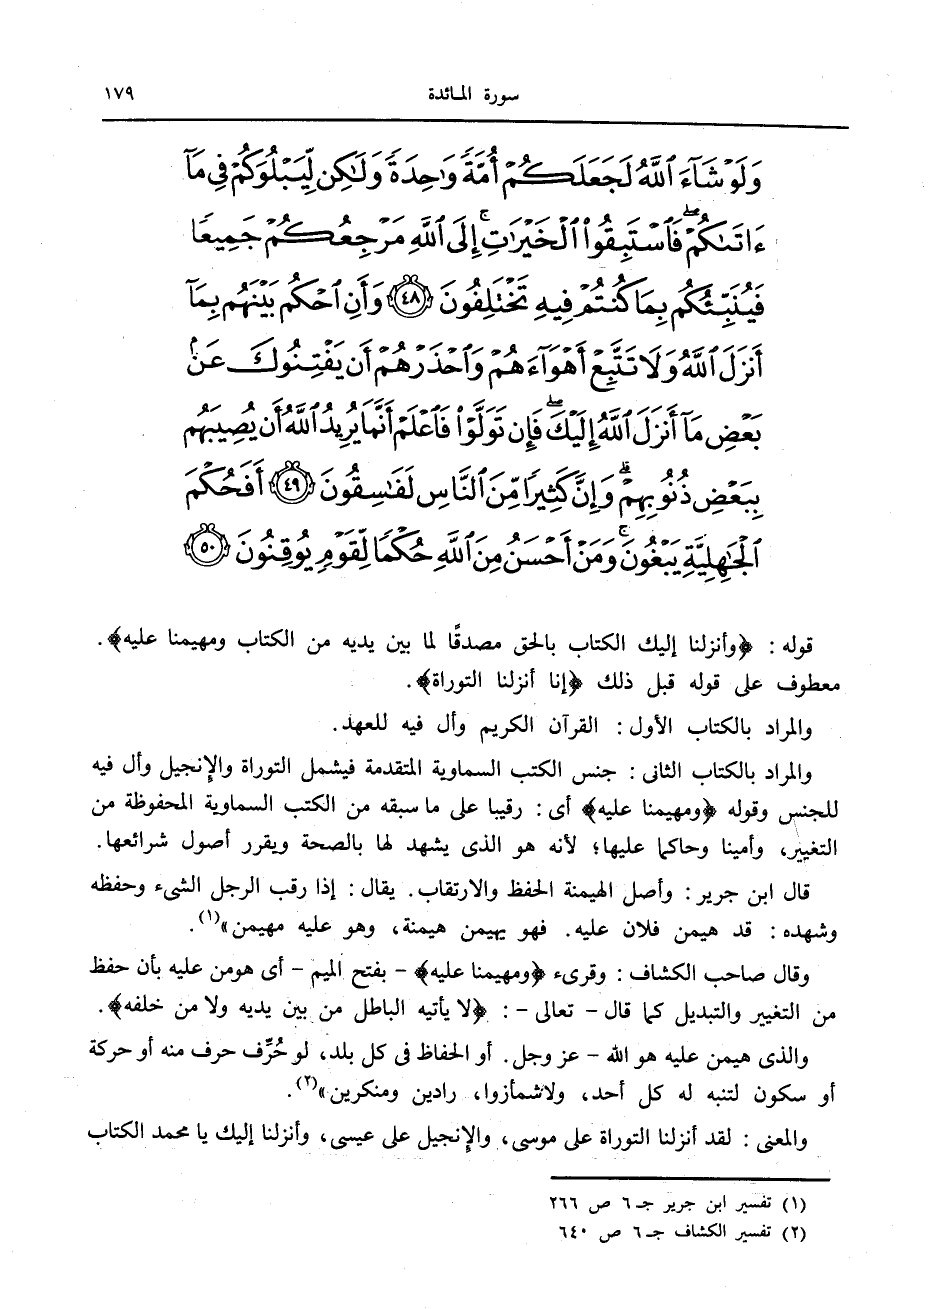 سورة المائدة ١٧٩
وَلَوْ شَآءَ ٱللَّهُ لَجَعَلَكُمْ أُمَّةً وَٰحِدَةً وَلَٰكِن لِّيَبْلُوَكُمْ فِى مَآ
ءَاتَىٰكُمْ ۖ فَٱسْتَبِقُوا۟ ٱلْخَيْرَٰتِ ۚ إِلَى ٱللَّهِ مَرْجِعُكُمْ جَمِيعًا
فَيُنَبِّئُكُم بِمَا كُنتُمْ فِيهِ تَخْتَلِفُونَ ﴿٤٨﴾ وَأَنِ ٱحْكُم بَيْنَهُم بِمَآ
أَنزَلَ ٱللَّهُ وَلَا تَتَّبِعْ أَهْوَآءَهُمْ وَٱحْذَرْهُمْ أَن يَفْتِنُوكَ عَنۢ
بَعْضِ مَآ أَنزَلَ ٱللَّهُ إِلَيْكَ ۖ فَإِن تَوَلَّوْا۟ فَٱعْلَمْ أَنَّمَا يُرِيدُ ٱللَّهُ أَن يُصِيبَهُم
بِبَعْضِ ذُنُوبِهِمْ ۗ وَإِنَّ كَثِيرًا مِّنَ ٱلنَّاسِ لَفَٰسِقُونَ ﴿٤٩﴾ أَفَحُكْمَ
ٱلْجَٰهِلِيَّةِ يَبْغُونَ ۚ وَمَنْ أَحْسَنُ مِنَ ٱللَّهِ حُكْمًا لِّقَوْمٍ يُوقِنُونَ ﴿٥٠﴾
قوله : ﴿وأنزلنا إليك الكتاب بالحق مصدقًا لما بين يديه من الكتاب ومهيمنا عليه﴾.
معطوف على قوله قبل ذلك ﴿إنا أنزلنا التوراة﴾.
والمراد بالكتاب الأول : القرآن الكريم وأل فيه للعهد.
والمراد بالكتاب الثانى : جنس الكتب السماوية المتقدمة فيشمل التوراة والإنجيل وأل فيه
للجنس وقوله ﴿ومهيمنا عليه﴾ أى : رقيبا على ما سبقه من الكتب السماوية المحفوظة من
التغيير، وأمينا وحاكما عليها؛ لأنه هو الذى يشهد لها بالصحة ويقرر أصول شرائعها.
قال ابن جرير : وأصل الهيمنة الحفظ والارتقاب. يقال : إذا رقب الرجل الشىء وحفظه
وشهده : قد هيمن فلان عليه. فهو يهيمن هيمنة، وهو عليه مهيمن»(١).
وقال صاحب الكشاف : وقرىء ﴿ومهيمنا عليه﴾ - بفتح الميم - أى هومن عليه بأن حفظ
من التغيير والتبديل كما قال - تعالى - : ﴿لا يأتيه الباطل من بين يديه ولا من خلفه﴾.
والذى هيمن عليه هو الله - عز وجل. أو الحفاظ فى كل بلد، لو حُرِّف حرف منه أو حركة
أو سكون لتنبه له كل أحد، ولاشمأزوا، رادين ومنكرين»(٢).
والمعنى : لقد أنزلنا التوراة على موسى، والإنجيل على عيسى، وأنزلنا إليك يا محمد الكتاب
(١) تفسير ابن جرير جـ ٦ ص ٢٦٦
(٢) تفسير الكشاف جـ ٦ ص ٦٤٠